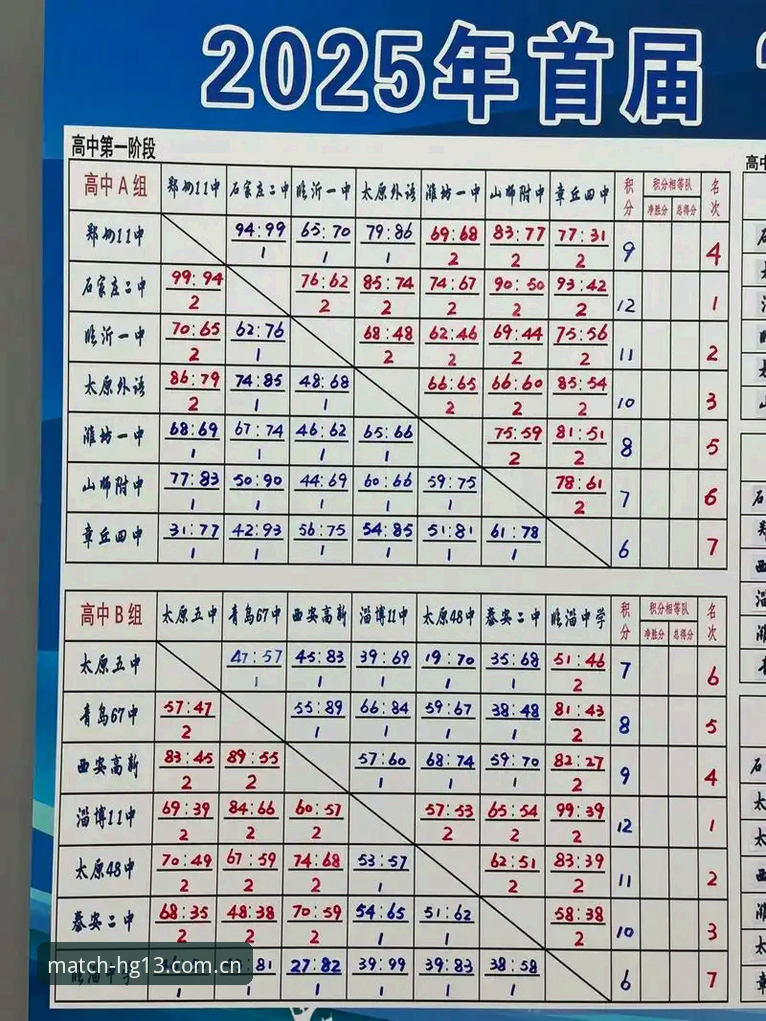 2025年首届
高中第一阶段
高中A组 郑州11中 石家庄二中 临沂一中 太原外语 潍坊一中 山师附中 章丘四中 积分 积分相等队 净胜分 总得分 名次
郑州11中 94:99 1 65:70 1 79:86 1 69:68 2 83:77 2 77:31 2 9 4
石家庄二中 99:94 2 76:62 2 85:74 2 74:67 2 90:50 2 93:42 2 12 1
临沂一中 70:65 2 62:76 1 68:48 2 62:46 2 69:44 2 75:56 2 11 2
太原外语 86:79 2 74:85 1 48:68 1 66:65 2 66:60 2 85:54 2 10 3
潍坊一中 68:69 1 67:74 1 46:62 1 65:66 1 75:59 2 81:51 2 8 5
山师附中 77:83 1 50:90 1 44:69 1 60:66 1 59:75 1 78:61 2 7 6
章丘四中 31:77 1 42:93 1 56:75 1 54:85 1 51:81 1 61:78 1 6 7
高中B组 太原五中 青岛67中 西安高新 淄博11中 太原48中 泰安二中 临淄中学 积分 积分相等队 净胜分 总得分 名次
太原五中 47:57 1 45:83 1 39:69 1 19:70 1 35:68 1 51:46 2 7 6
青岛67中 57:47 2 55:89 1 66:84 1 59:67 1 38:48 1 81:43 2 8 5
西安高新 83:45 2 89:55 2 57:60 1 68:74 1 59:70 1 82:27 2 9 4
淄博11中 69:39 2 84:66 2 60:57 2 57:53 2 65:54 2 99:39 2 12 1
太原48中 70:49 2 67:59 2 74:68 2 53:57 1 62:51 2 83:39 2 11 2
泰安二中 68:35 2 48:38 2 70:59 2 54:65 1 51:62 1 58:38 2 10 3
1 :81 1 27:82 1 39:99 1 39:83 1 38:58 1 6 7
match-hg13.com.cn
高中